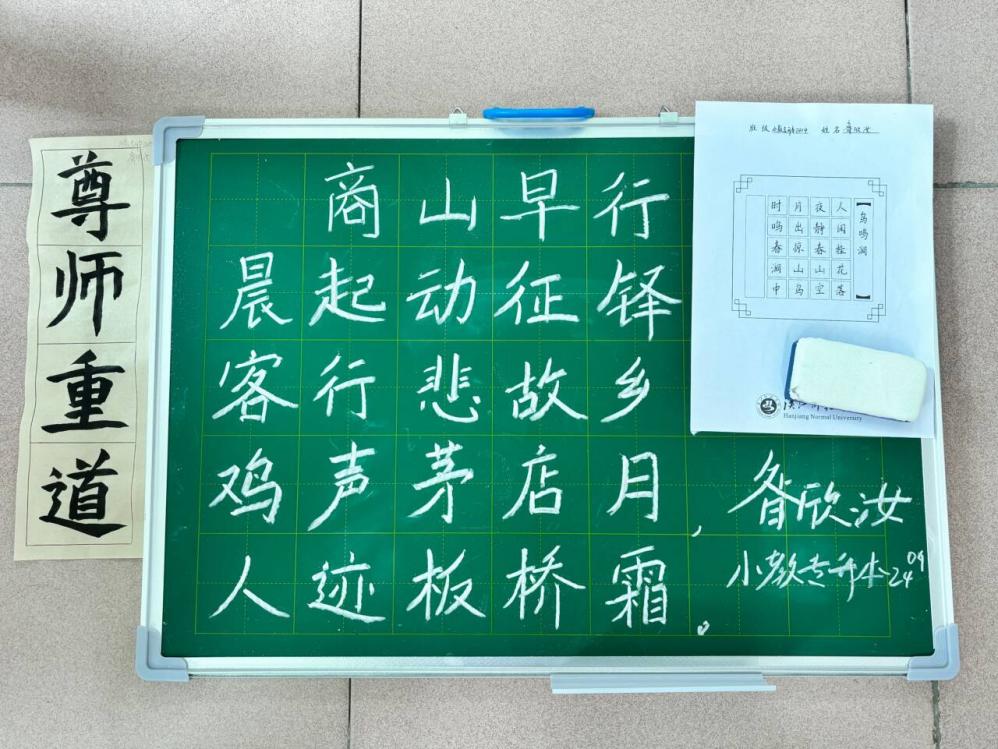 尊师重道
商山早行
晨起动征铎
客行悲故乡
鸡声茅店月，
人迹板桥霜。
昝欣汝
小教专升本2409
班级 姓名
【鸟鸣涧】
人闲桂花落
夜静春山空
月出惊山鸟
时鸣春涧中
Hanjiang Normal University